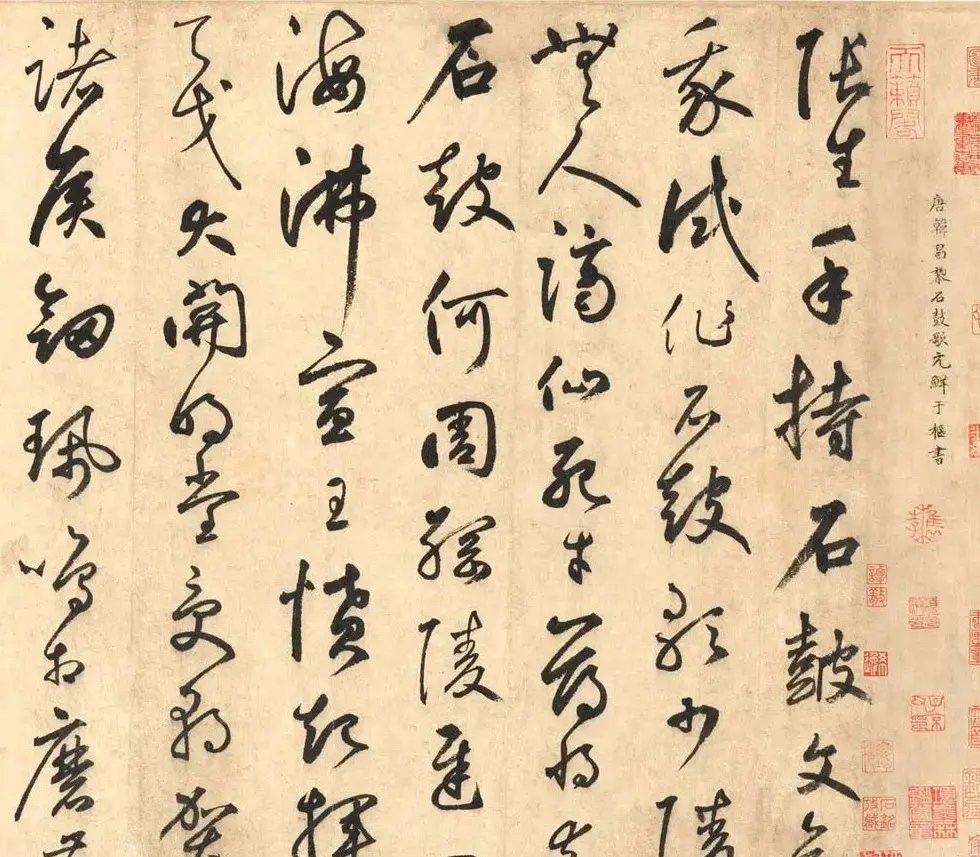 天籟閣
唐韓昌黎石鼓歌元鮮于樞書
張生手持石皷文
我試作石皷歌少陵
無人謫仙死才薄將奈
石皷何周綱陵遲
海沸宣王憤起揮
天戈大開明堂受朝賀
諸侯劔珮鳴相磨